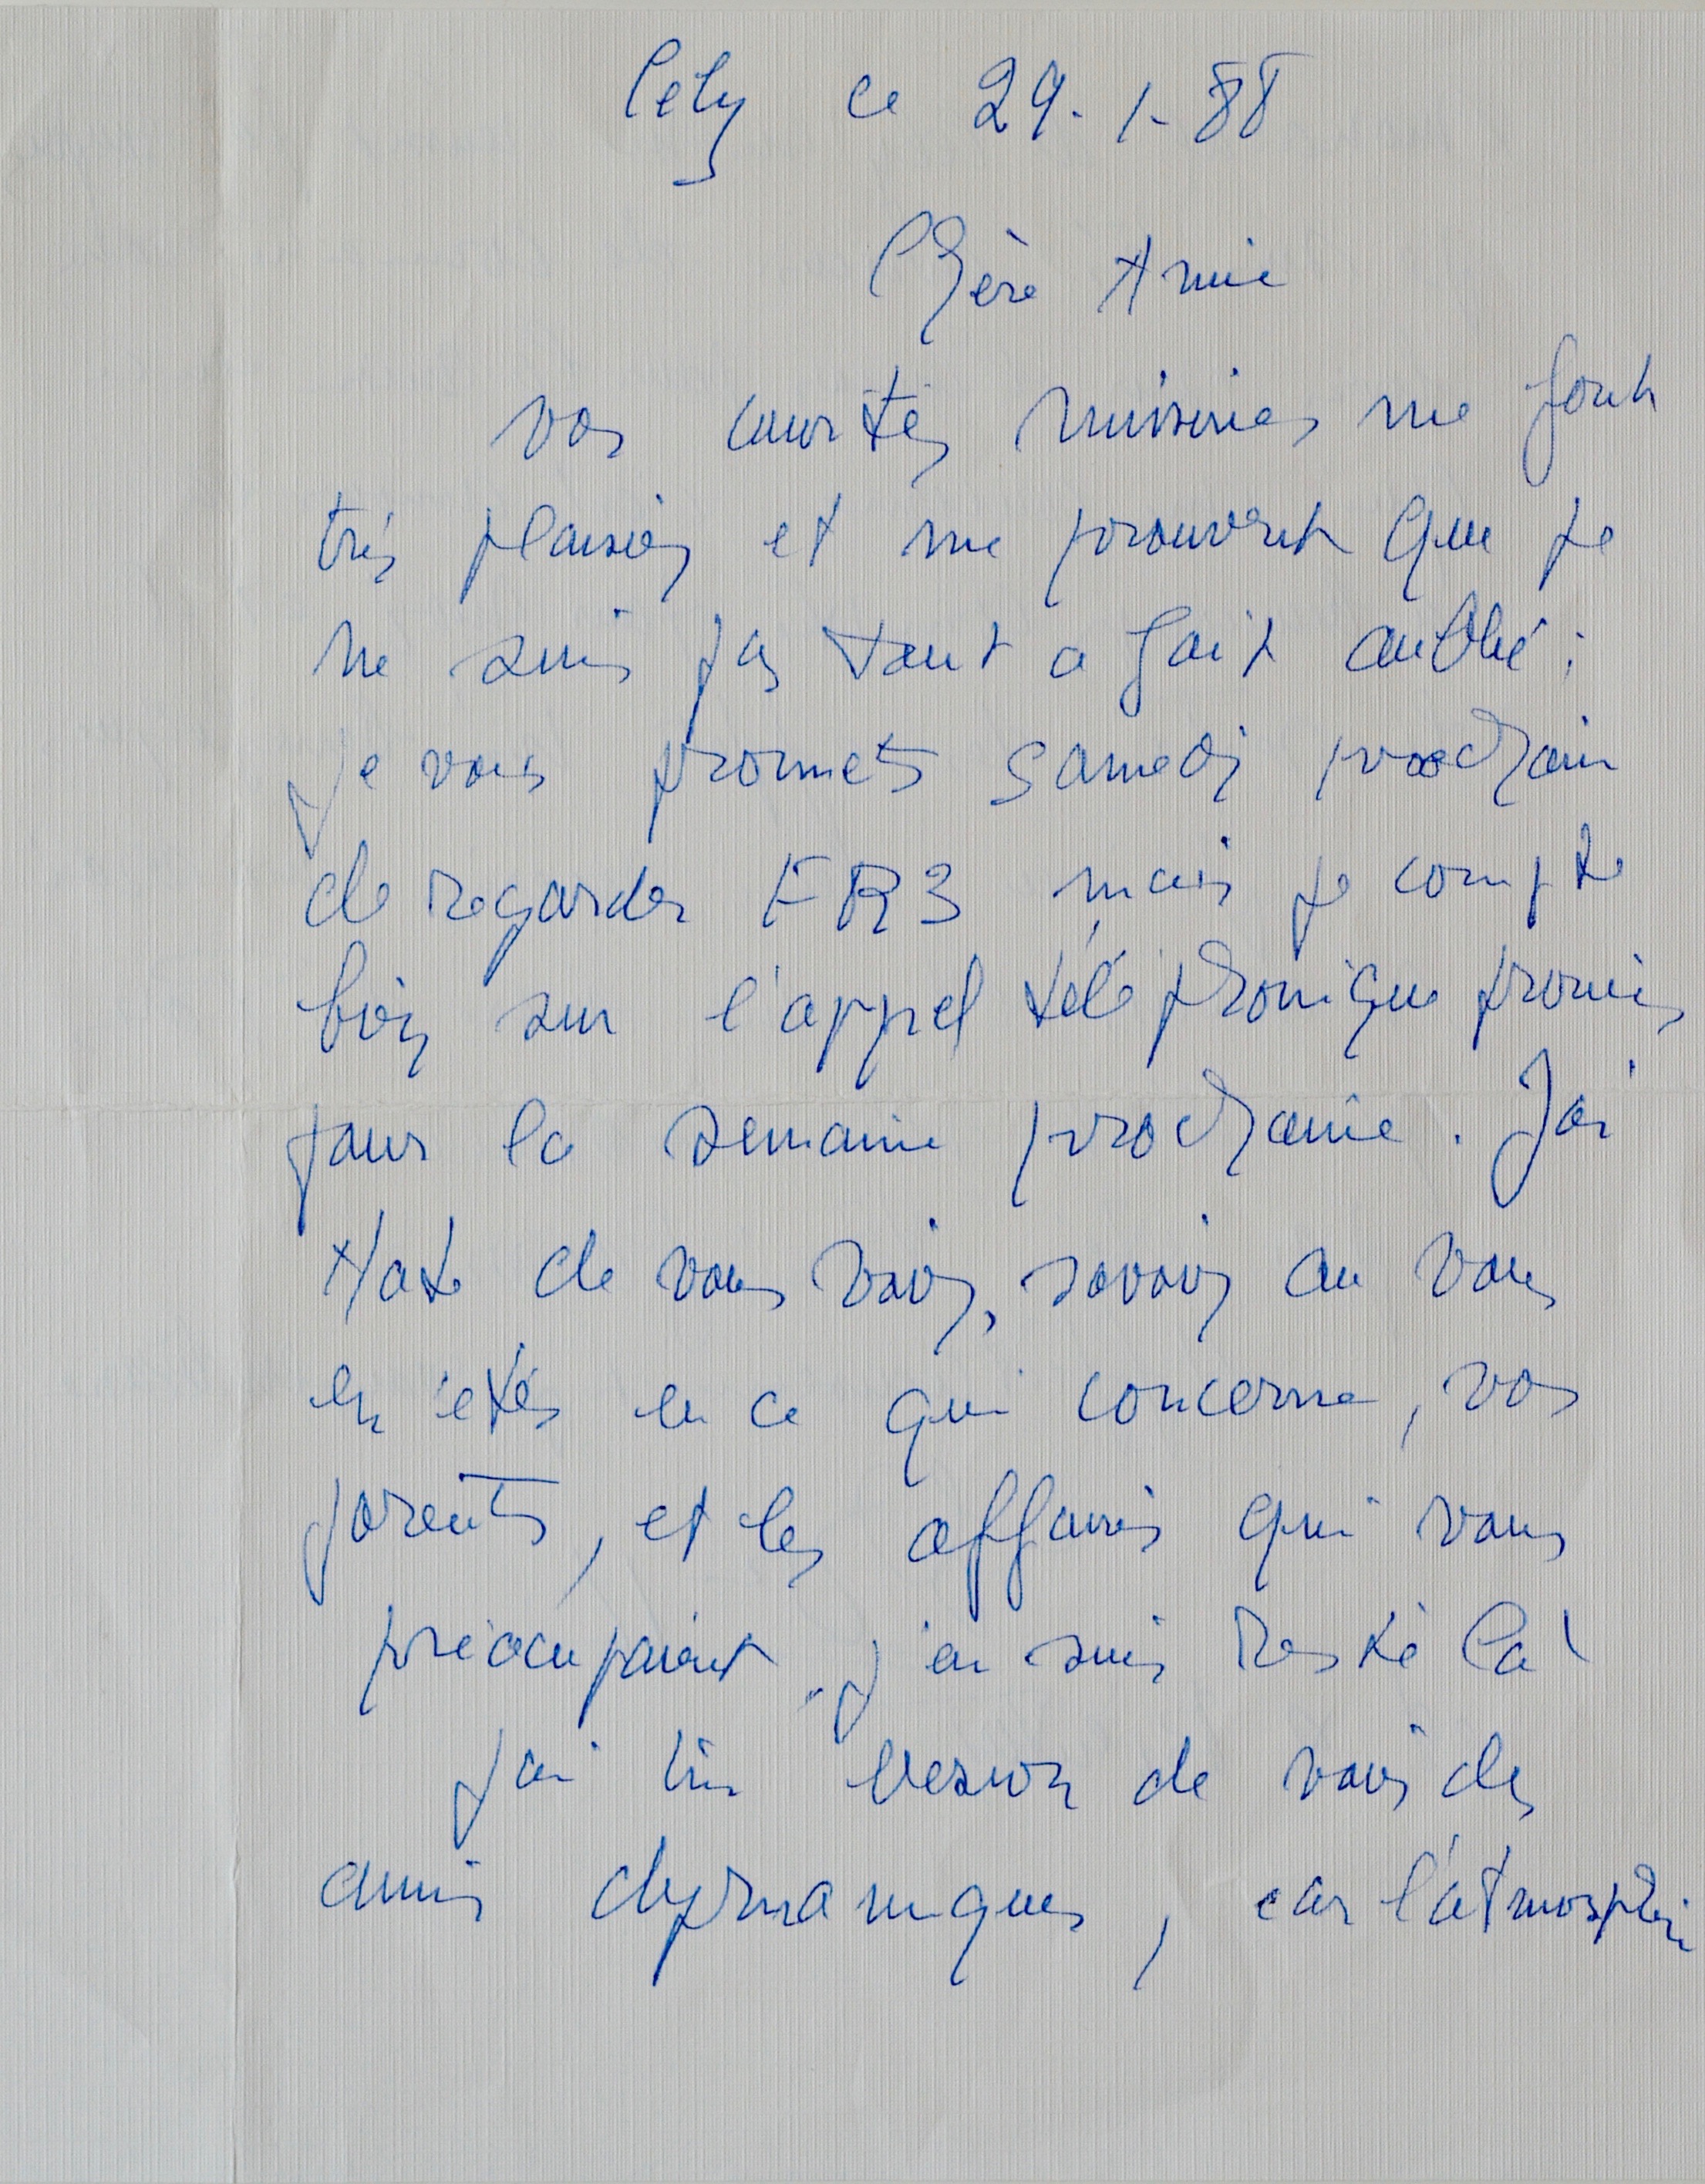 Cély ce 29-1-88
Chère Amie
vos courtes missives me font
très plaisir et me prouvent que je
ne suis pas tout a fait oublié ;
je vous promets samedi prochain
de regarder FR3 mais je compte
bien sur l'appel téléphonique promis
pour la semaine prochaine. J'ai
Hate de vous voir, savoir ou vous
en étés en ce qui concerne, vos
parents, et les affaires qui vous
préocupaient. j'en suis resté la!
j'ai besoin de voir des
amis dynamiques, car l'atmosphère